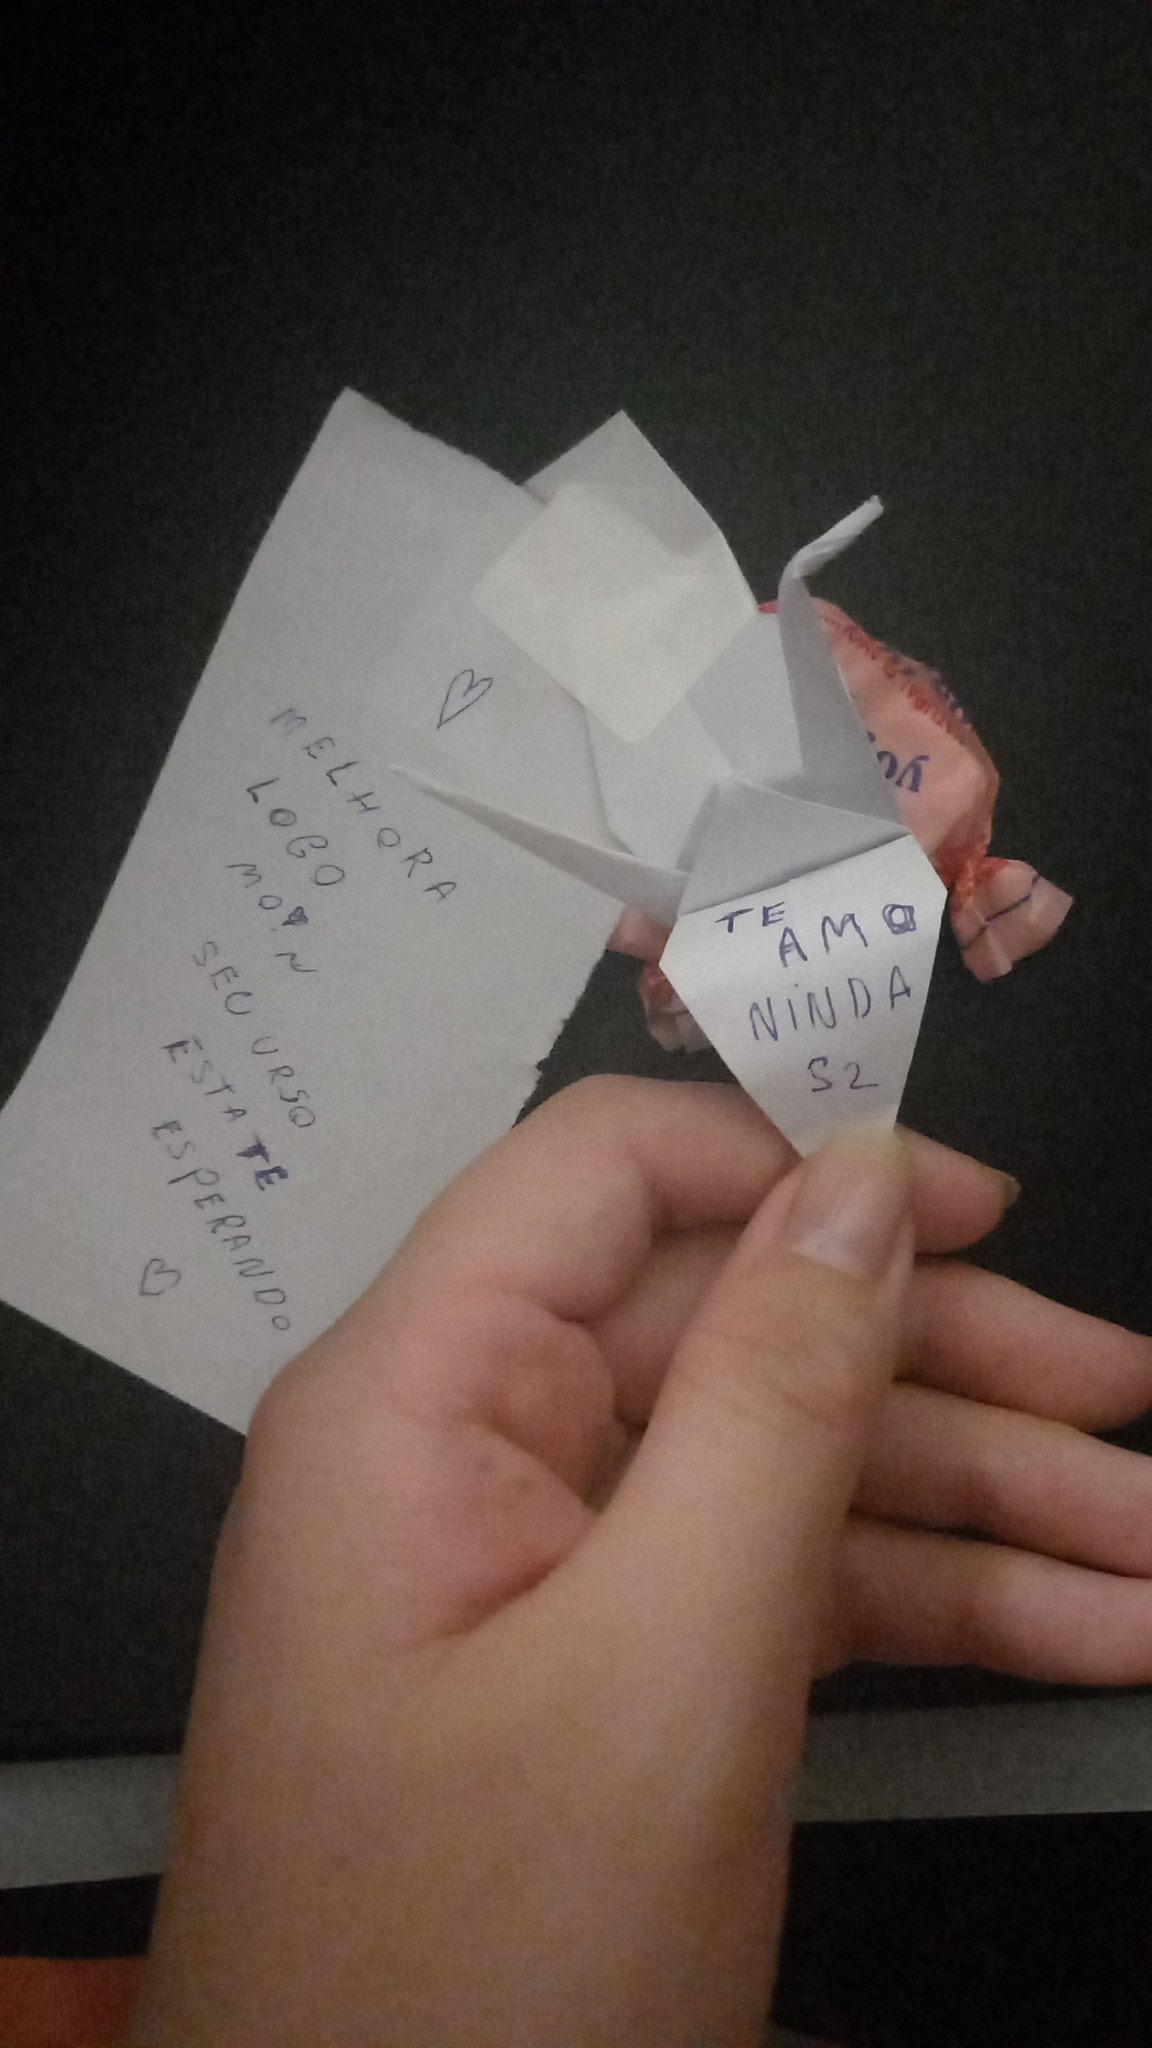 MELHORA
LOGO
MOZN
SEU URSO
ESTA TE
ESPERANDO
TE
AMO
NINDA
S2